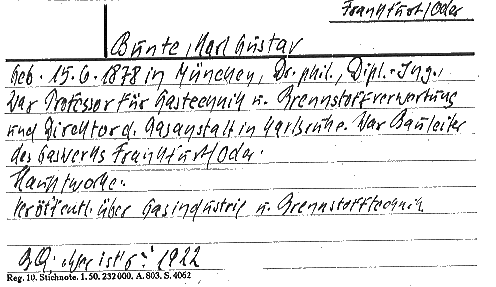 Frankfurt/Oder
Bunte, Karl Gustav
Geb. 15.6.1878 in München, Dr. phil., Dipl.-Ing.,
War Professor für Gastechnik u. Brennstoffverwertung
und Direktor d. Gasanstalt in Karlsruhe. War Bauleiter
des Gaswerks Frankfurt/Oder.
Hauptwerke:
Veröffentl. über Gasindustrie u. Brennstofftechnik
1922
Reg. 10. Stichnote. 1. 50. 232000. A. 803. S. 4062